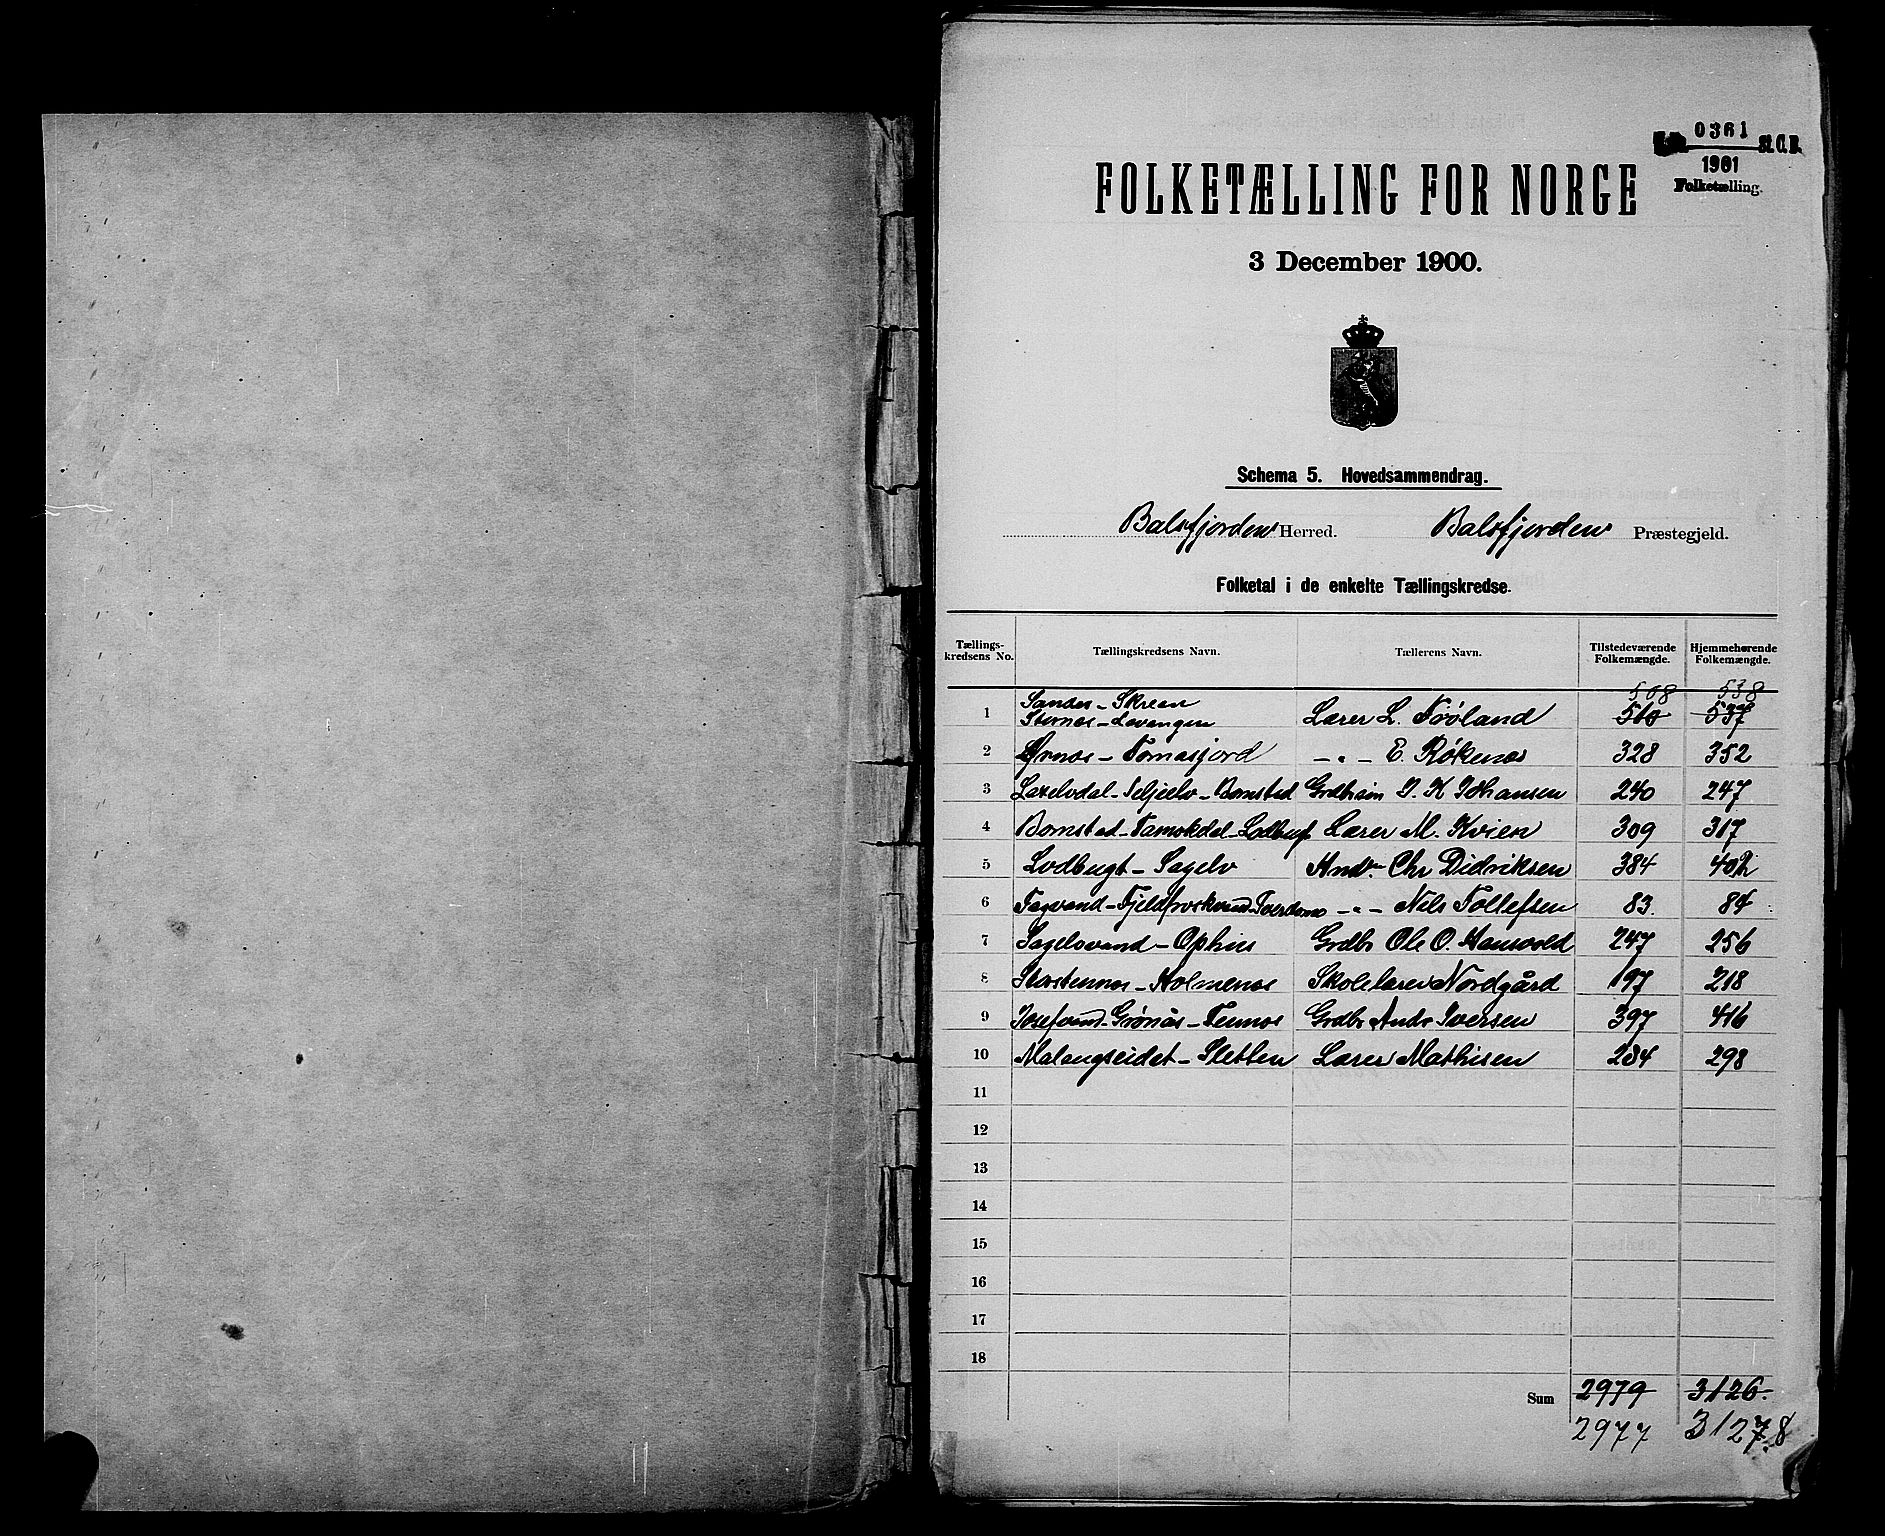 0361
St. C. B.
1901
Folketælling.
FOLKETÆLLING FOR NORGE
3 December 1900.
Schema 5. Hovedsammendrag.
Balsfjorden Herred. Balsfjorden Præstegjeld.
Folketal i de enkelte Tællingskredse.
Tællingskredsens No. Tællingskredsens Navn. Tællerens Navn. Tilstedeværende Folkemængde. Hjemmehørende Folkemængde.
508 538
1 Sandør - Skreen Stornes - Lavangen Lærer L. 510 537
2 Ørnæs - Tomasjord - " - E. Røkenes 328 352
3 Laxelvdal - Seljelv - Bomstad Grdbr.søn I. K Johansen 240 247
4 Bomstad - Tamokdal - Lodbugt Lærer M. Kvien 309 317
5 Lodbugt - Sagelv Chr Didriksen 384 402
6 Tagvand - Fjeldfroskvand - - " - Nils Tollefsen 83. 84
7 Sagelvvand - Ophus Grdbr Ole O. Hamvold 247 256
8 Storstennes - Holmenes Skolelærer Nordgård 197 218
9 Josefvand - Grønås - Tennes Grdbr Andr Iversen 397 416
10 Malangseidet - Sletten Lærer Mathisen 284 298
11
12
13
14
15
16
17
18
Sum 2979 3126.
2977 3127.8